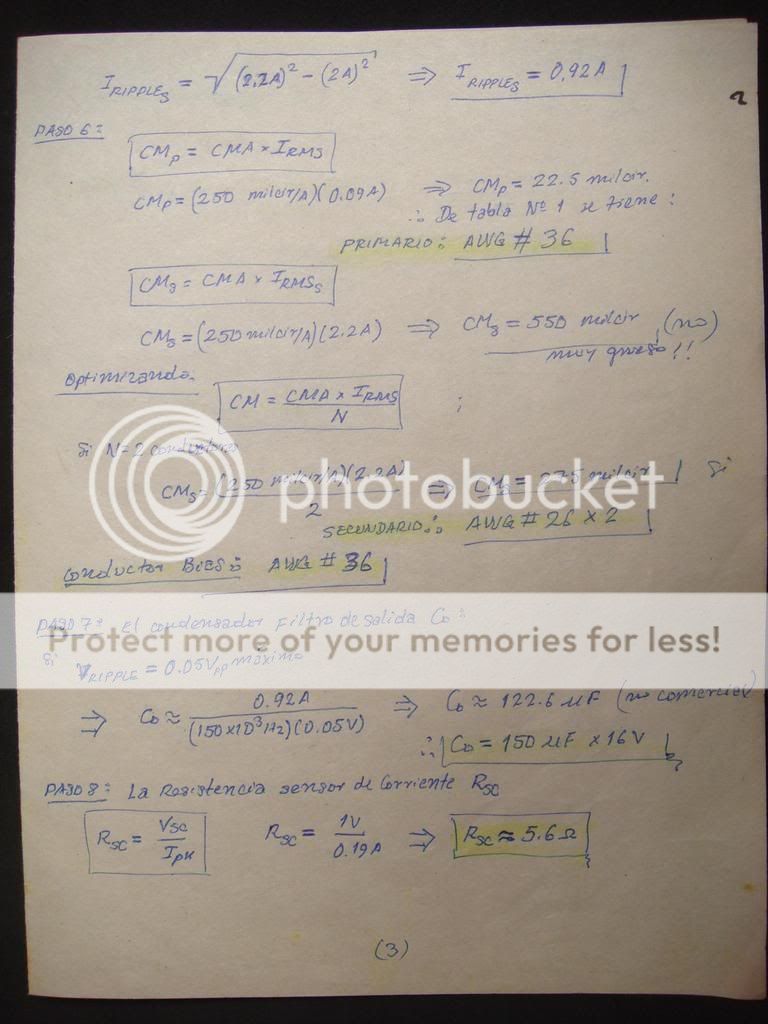 I RIPPLES = √(2.2A)² - (2A)² ⇒ I RIPPLES = 0,92A
2
PASO 6:
CMp = CMA × IRMS
CMp = (250 milcir/A)(0.09A) ⇒ CMp = 22.5 milcir.
∴ De tabla Nº 1 se tiene:
PRIMARIO: AWG # 36
CMs = CMA × IRMSs
CMs = (250 milcir/A)(2.2A) ⇒ CMs = 550 milcir (no)
muy grueso!!
Optimizando.
CM = CMA × IRMS / N ;
Si N=2 conductores
CMs = (250 milcir/A)(2.2A) / 2 ⇒ CMs = 275 milcir Si
photobucket
SECUNDARIO: AWG # 26 × 2
Conductor Bias: AWG # 36
PASO 7: El condensador Filtro de salida Co:
Protect more of your memories for less!
Si VRIPPLE = 0.05Vpp máximo
⇒ Co ≈ 0.92A / (150×10³Hz)(0.05V) ⇒ Co ≈ 122.6 µF (no comercial)
∴ Co = 150 µF × 16V
PASO 8: La Resistencia sensor de Corriente RSC
RSC = VSC / Ipk RSC = 1V / 0.19A ⇒ RSC ≈ 5.6 Ω
(3)